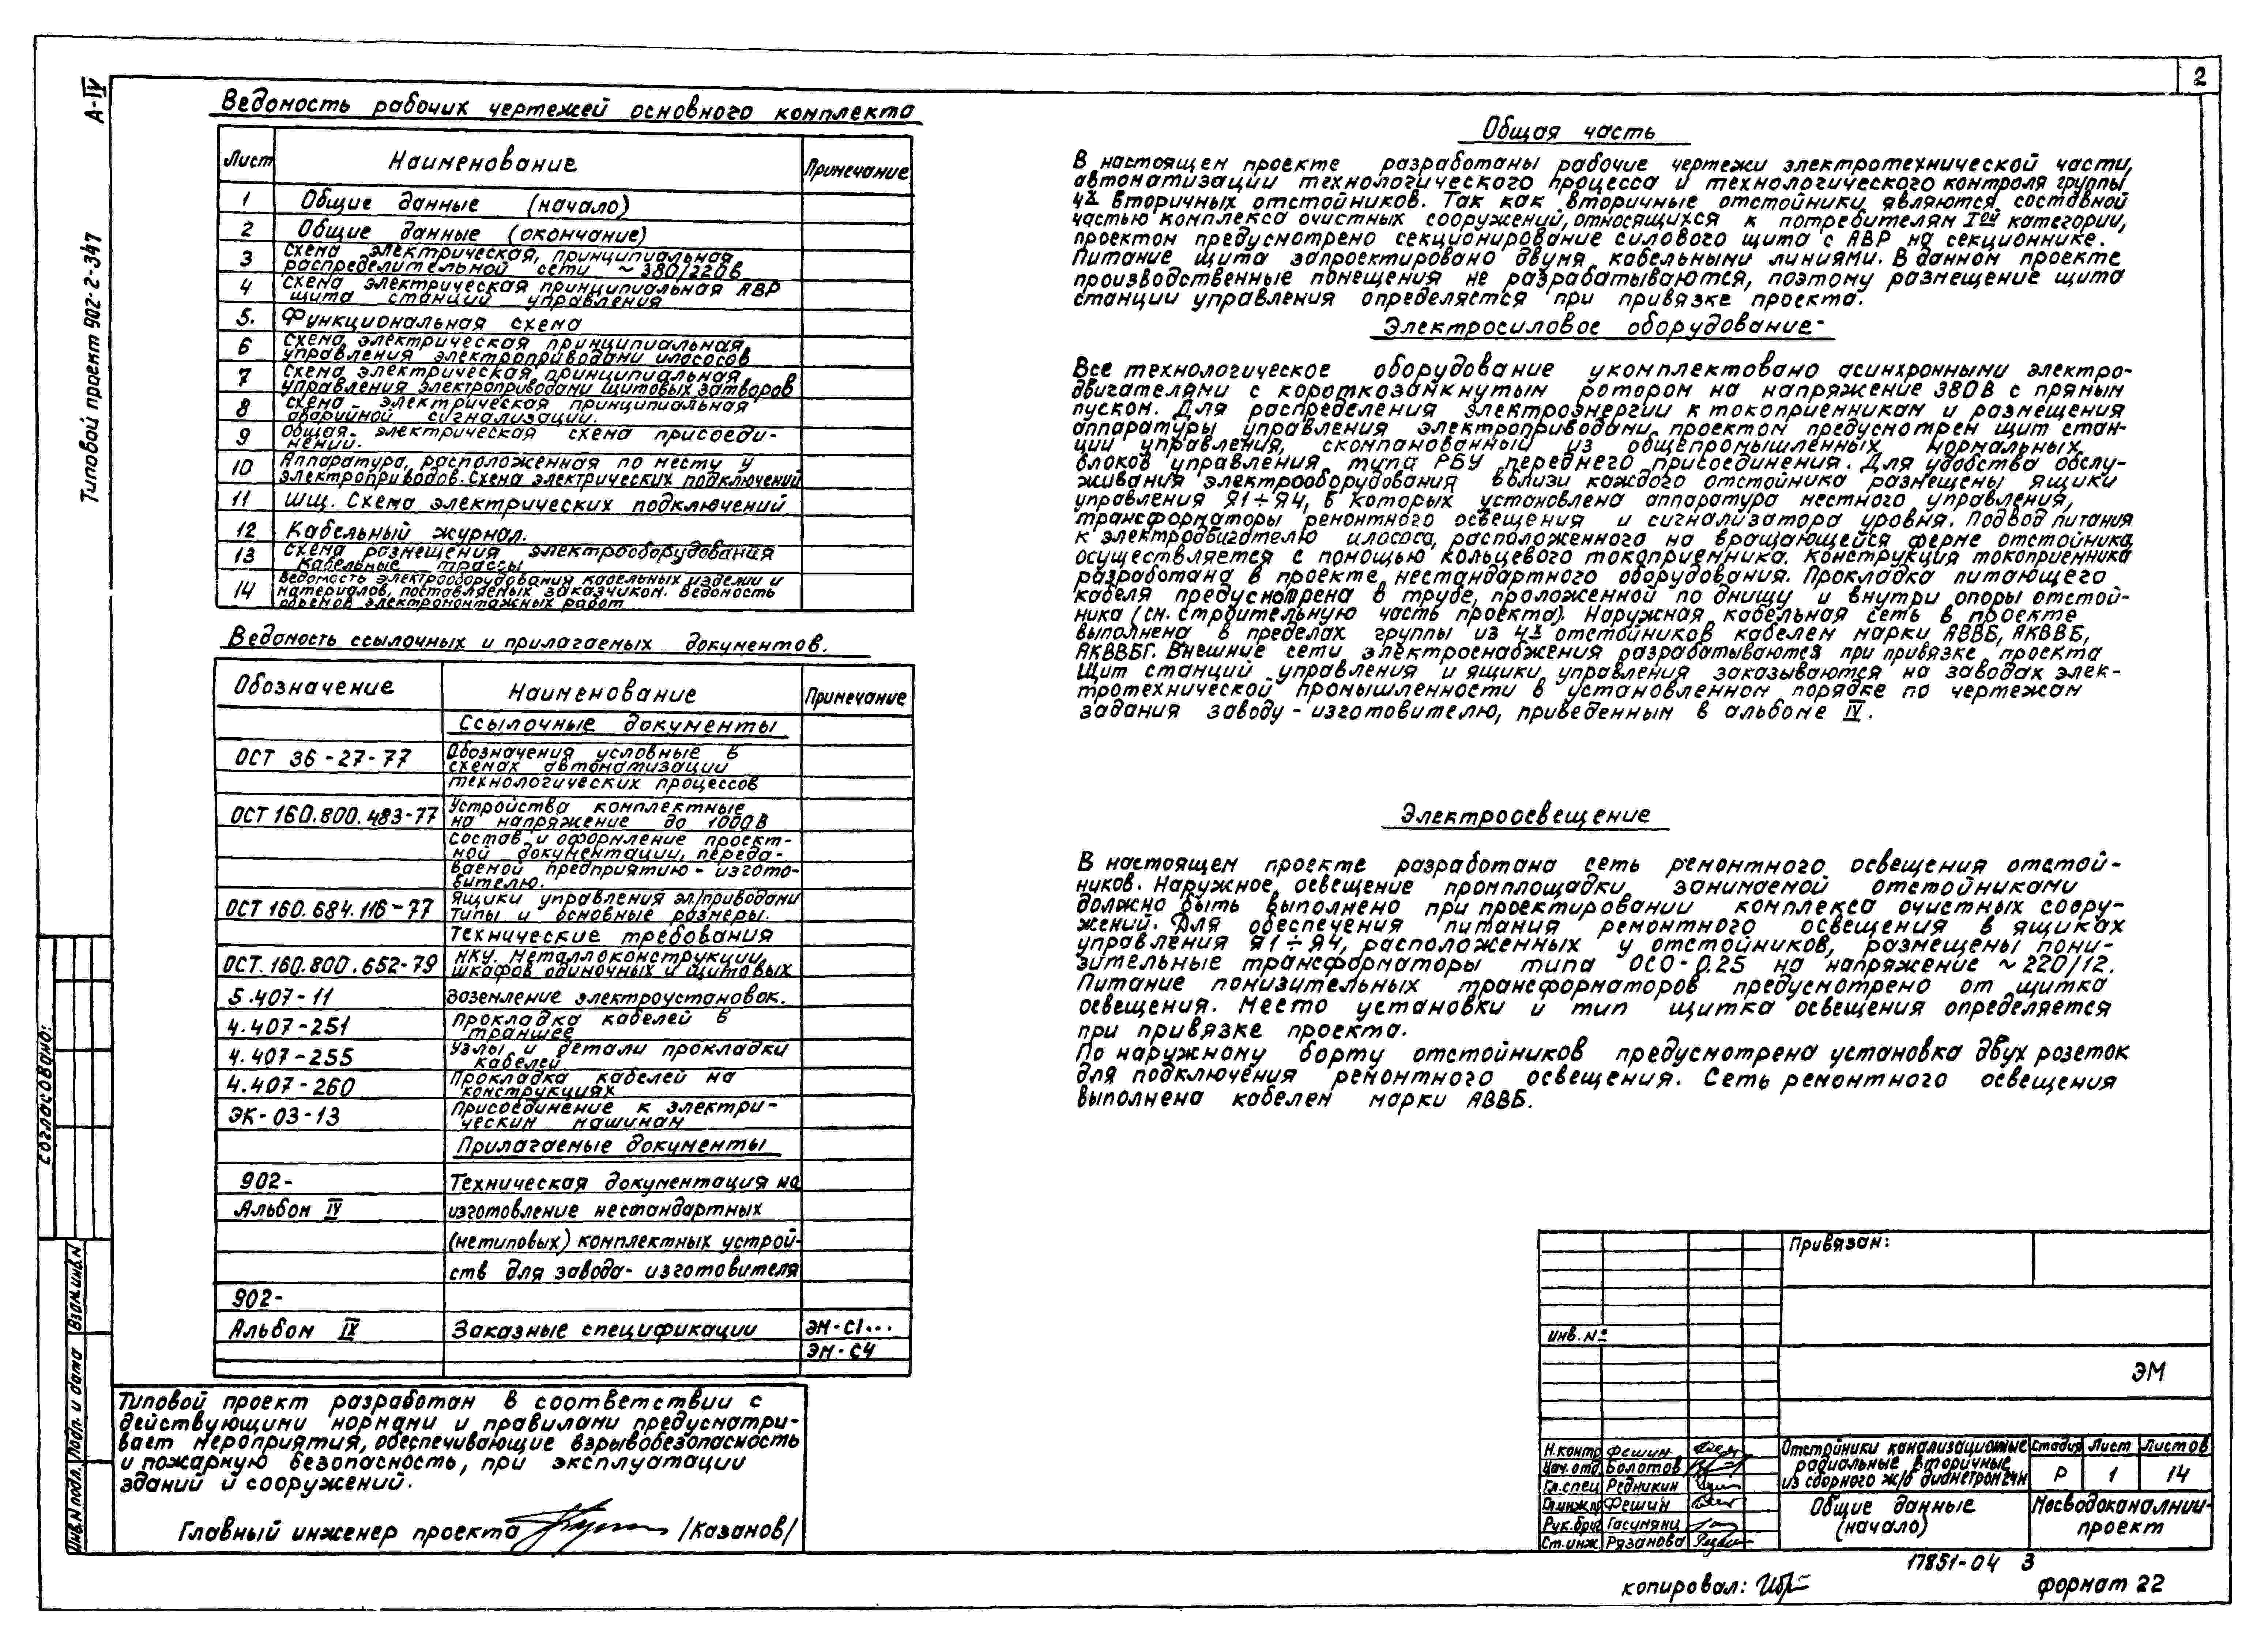 2
А-IV
Типовой проект 902-2-347
Ведомость рабочих чертежей основного комплекта
Лист Наименование Примечание
1 Общие данные (начало)
2 Общие данные (окончание)
3 Схема электрическая, принципиальная
распределительной сети ~380/220В
4 Схема электрическая принципиальная АВР
щита станций управления
5. Функциональная схема
6 Схема электрическая принципиальная
управления электроприводами илососов
7 Схема электрическая принципиальная
управления электроприводами щитовых затворов
8 Схема электрическая принципиальная
аварийной сигнализации.
9 Общая электрическая схема присоеди-
нений.
10 Аппаратура, расположенная по месту у
электроприводов. Схема электрических подключений
11 ШЩ. Схема электрических подключений
12 Кабельный журнал.
13 Схема размещения электрооборудования
Кабельные трассы
14 Ведомость электрооборудования кабельных изделий и
материалов, поставляемых заказчиком. Ведомость
объемов электромонтажных работ
Ведомость ссылочных и прилагаемых документов.
Обозначение Наименование Примечание
Ссылочные документы
ОСТ 36-27-77 Обозначения условные в
схемах автоматизации
технологических процессов
ОСТ 160.800.483-77 Устройства комплектные
на напряжение до 1000В
Состав и оформление проект-
ной документации, переда-
ваемой предприятию-изгото-
вителю.
ОСТ 160.684.116-77 Ящики управления эл/приводами
Типы и основные размеры.
Технические требования
ОСТ.160.800.652-79 НКУ. Металлоконструкции,
шкафов одиночных и щитовых
5.407-11 Заземление электроустановок.
4.407-251 Прокладка кабелей в
траншее
4.407-255 Узлы и детали прокладки
кабелей
4.407-260 Прокладка кабелей на
конструкциях
ЭК-03-13 Присоединение к электри-
ческим машинам
Прилагаемые документы
902- Техническая документация на
Альбом IV изготовление нестандартных
(нетиповых) комплектных устрой-
ств для завода-изготовителя
902-
Альбом IX Заказные спецификации ЭМ-С1...
ЭМ-С4
Типовой проект разработан в соответствии с
действующими нормами и правилами предусматри-
вает мероприятия, обеспечивающие взрывобезопасность
и пожарную безопасность, при эксплуатации
зданий и сооружений.
Главный инженер проекта /Казанов/
Общая часть
В настоящем проекте разработаны рабочие чертежи электротехнической части,
автоматизации технологического процесса и технологического контроля группы
4х вторичных отстойников. Так как вторичные отстойники являются составной
частью комплекса очистных сооружений, относящихся к потребителям Iой категории,
проектом предусмотрено секционирование силового щита с АВР на секционнике.
Питание щита запроектировано двумя кабельными линиями. В данном проекте
производственные помещения не разрабатываются, поэтому размещение щита
станции управления определяется при привязке проекта.
Электросиловое оборудование
Все технологическое оборудование укомплектовано асинхронными электро-
двигателями с короткозамкнутым ротором на напряжение 380В с прямым
пуском. Для распределения электроэнергии к токоприемникам и размещения
аппаратуры управления электроприводами проектом предусмотрен щит стан-
ции управления, скомпанованный из общепромышленных нормальных
блоков управления типа РБУ переднего присоединения. Для удобства обслу-
живания электрооборудования вблизи каждого отстойника размещены ящики
управления Я1÷Я4, в которых установлена аппаратура местного управления,
трансформаторы ремонтного освещения и сигнализатора уровня. Подвод питания
к электродвигателю илососа, расположенного на вращающейся ферме отстойника,
осуществляется с помощью кольцевого токоприемника. Конструкция токоприемника
разработана в проекте нестандартного оборудования. Прокладка питающего
кабеля предусмотрена в трубе, проложенной по днищу и внутри опоры отстой-
ника (см. строительную часть проекта). Наружная кабельная сеть в проекте
выполнена в пределах группы из 4х отстойников кабелем марки АВВБ, АКВВБ,
АКВВБГ. Внешние сети электроснабжения разрабатываются при привязке проекта
Щит станций управления и ящики управления заказываются на заводах элек-
тротехнической промышленности в установленном порядке по чертежам
задания заводу-изготовителю, приведенным в альбоме IV.
Электроосвещение
В настоящем проекте разработана сеть ремонтного освещения отстой-
ников. Наружное освещение промплощадки занимаемой отстойниками
должно быть выполнено при проектировании комплекса очистных соору-
жений. Для обеспечения питания ремонтного освещения в ящиках
управления Я1÷Я4, расположенных у отстойников, размещены пони-
зительные трансформаторы типа ОСО-0.25 на напряжение ~220/12.
Питание понизительных трансформаторов предусмотрено от щитка
освещения. Место установки и тип щитка освещения определяется
при привязке проекта.
По наружному борту отстойников предусмотрена установка двух розеток
для подключения ремонтного освещения. Сеть ремонтного освещения
выполнена кабелем марки АВВБ.
Привязан:
Инв.№
ЭМ
Н.контр Фешин
Нач.отд Болотов
Гл.спец Редникин
Гл.инж.пр Фешин
Рук.бриг Гасумянц
Ст.инж. Рязанова
Отстойники канализационные
радиальные вторичные
из сборного ж/б диаметром 24м
Стадия Лист Листов
Р 1 14
Общие данные
(начало)
Мосводоканалнии-
проект
17851-04 3
копировал:
формат 22
Согласовано:
Взам.инв.N
Подп. и дата
Инв.N подл.